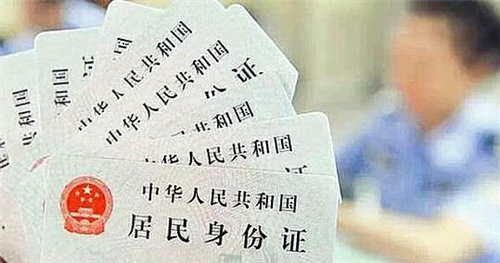 中华人民共和国
中华人民共和国
份证
人民共和国
人民共和国
份证
中华人民共和国
居民身份证